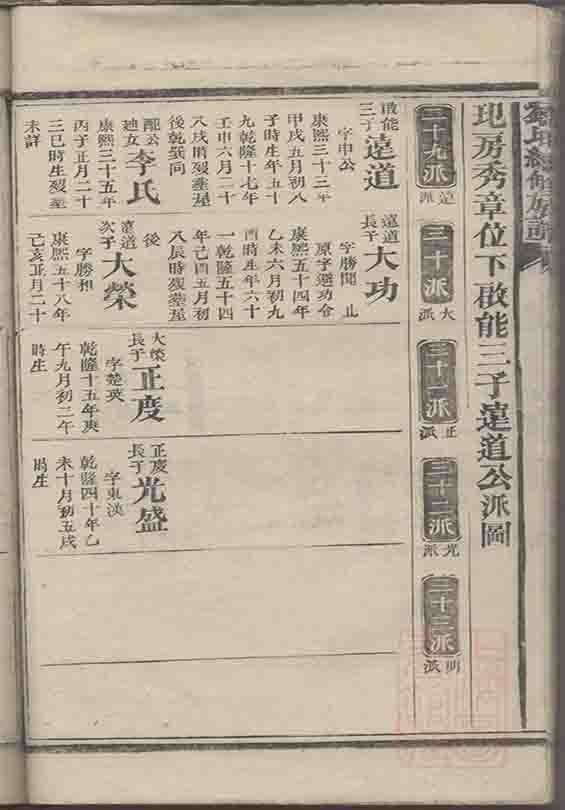 圯房秀章位下啟能三子遠道公派圖
二十九派
遠派
三十派
大派
三十一派
正派
三十二派
光派
三十三派
明派
啟能
三子
遠道
字申公
康熙三十三年
甲戌五月初八
子時生年五十
九乾隆十七年
壬申六月二十
八戌時歿塟屋
後乾巽向
配公
廸女
李氏
康熙三十五年
丙子正月二十
三巳時生歿塟
未詳
遠道
長子
大功
字勝聞
止
康熙五十四
乙未六月初九
酉時生年六十
一乾隆五十四
年己酉五月初
八辰時歿塟屋
後
遠道
次子
大榮
字勝和
康熙五十八年
己亥正月二十
大榮
長子
正度
字楚英
乾隆十五年庚
午九月初二午
時生
正度
長子
光盛
字東漢
乾隆四十年乙
未十月初五戌
時生